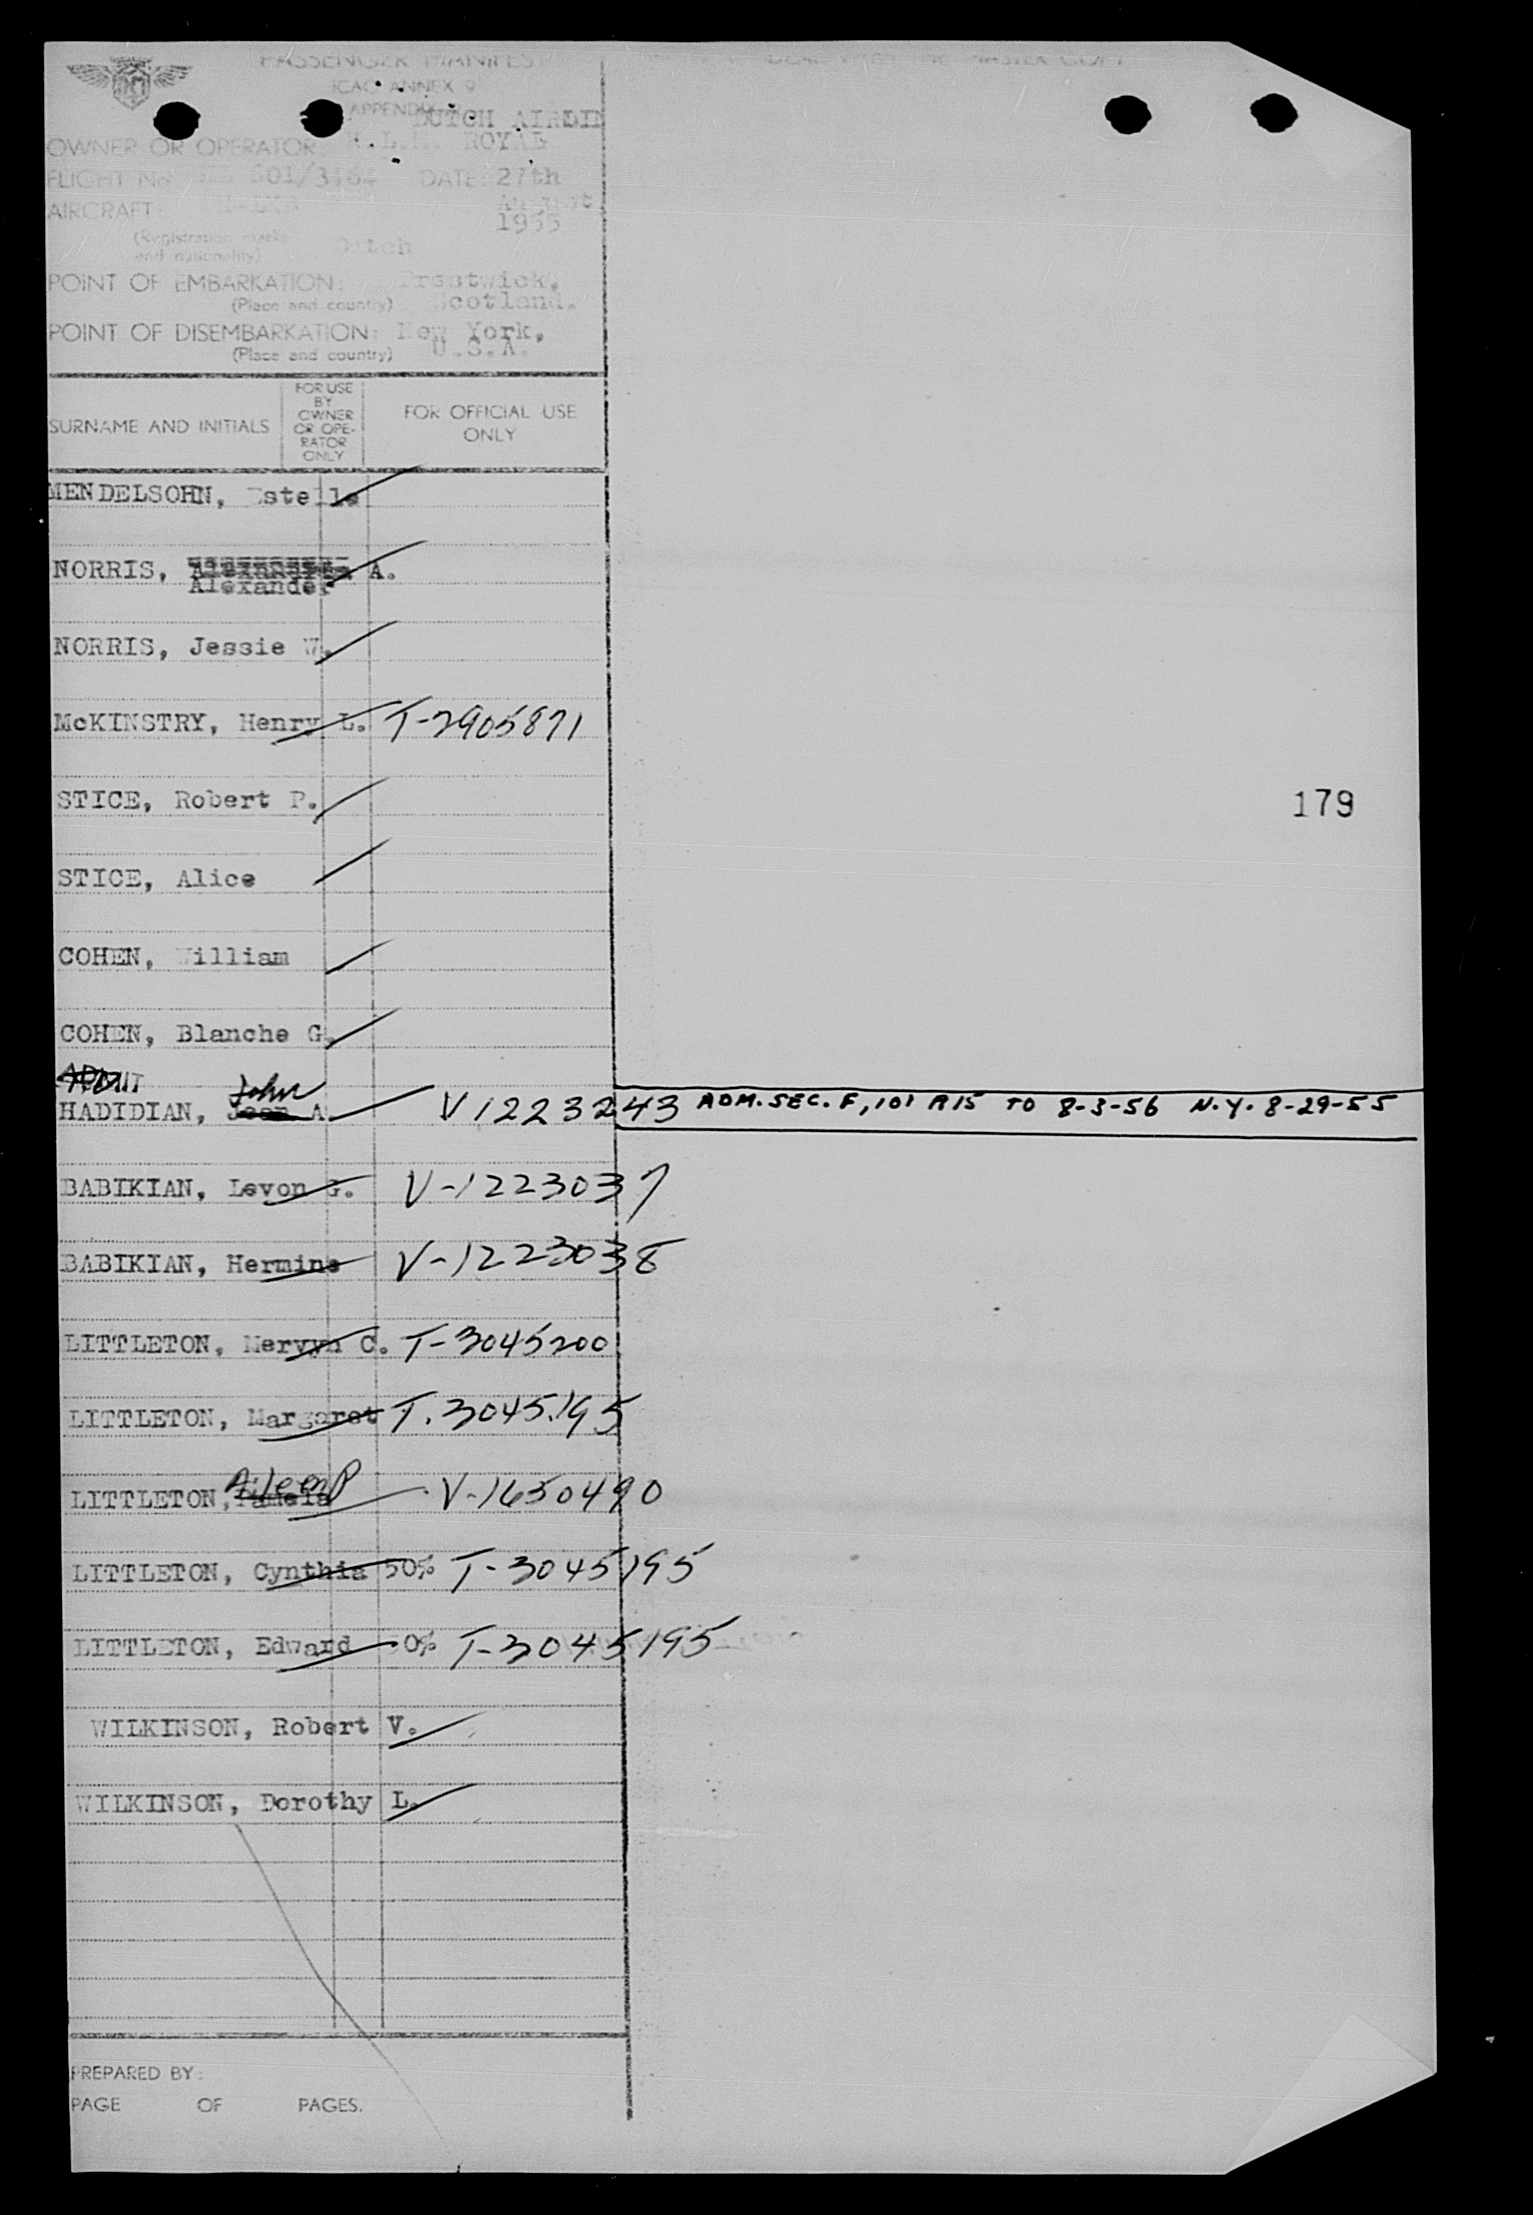 PASSENGER MANIFEST
ICAO ANNEX 9
APPENDIX
DUTCH AIRLIN
OWNER OR OPERATOR: K.L.M. ROYAL
FLIGHT No 601/3 DATE: 27th
AIRCRAFT: August
1955
(Registration marks
and nationality) Dutch
POINT OF EMBARKATION: Prestwick,
(Place and country) Scotland.
POINT OF DISEMBARKATION: New York,
(Place and country) U.S.A.
SURNAME AND INITIALS
FOR USE
BY
OWNER
OR OPE-
RATOR
ONLY
FOR OFFICIAL USE
ONLY
MENDELSOHN, Estelle
NORRIS, A.
Alexander
NORRIS, Jessie W.
McKINSTRY, Henry L. T-2905871
STICE, Robert P.
179
STICE, Alice
COHEN, William
COHEN, Blanche G.
ADMIT
John
HADIDIAN, Jean A. V1223243 ADM. SEC. F, 101 A15 TO 8-3-56 N.Y. 8-29-55
BABIKIAN, Levon G. V-1223037
BABIKIAN, Hermine V-1223038
LITTLETON, Mervyn C. T-3045200
LITTLETON, Margaret T.3045195
Aileen P
LITTLETON, Pamela V-1650490
LITTLETON, Cynthia 50% T-3045195
LITTLETON, Edward 50% T-3045195
WILKINSON, Robert V.
WILKINSON, Dorothy L.
PREPARED BY:
PAGE OF PAGES.